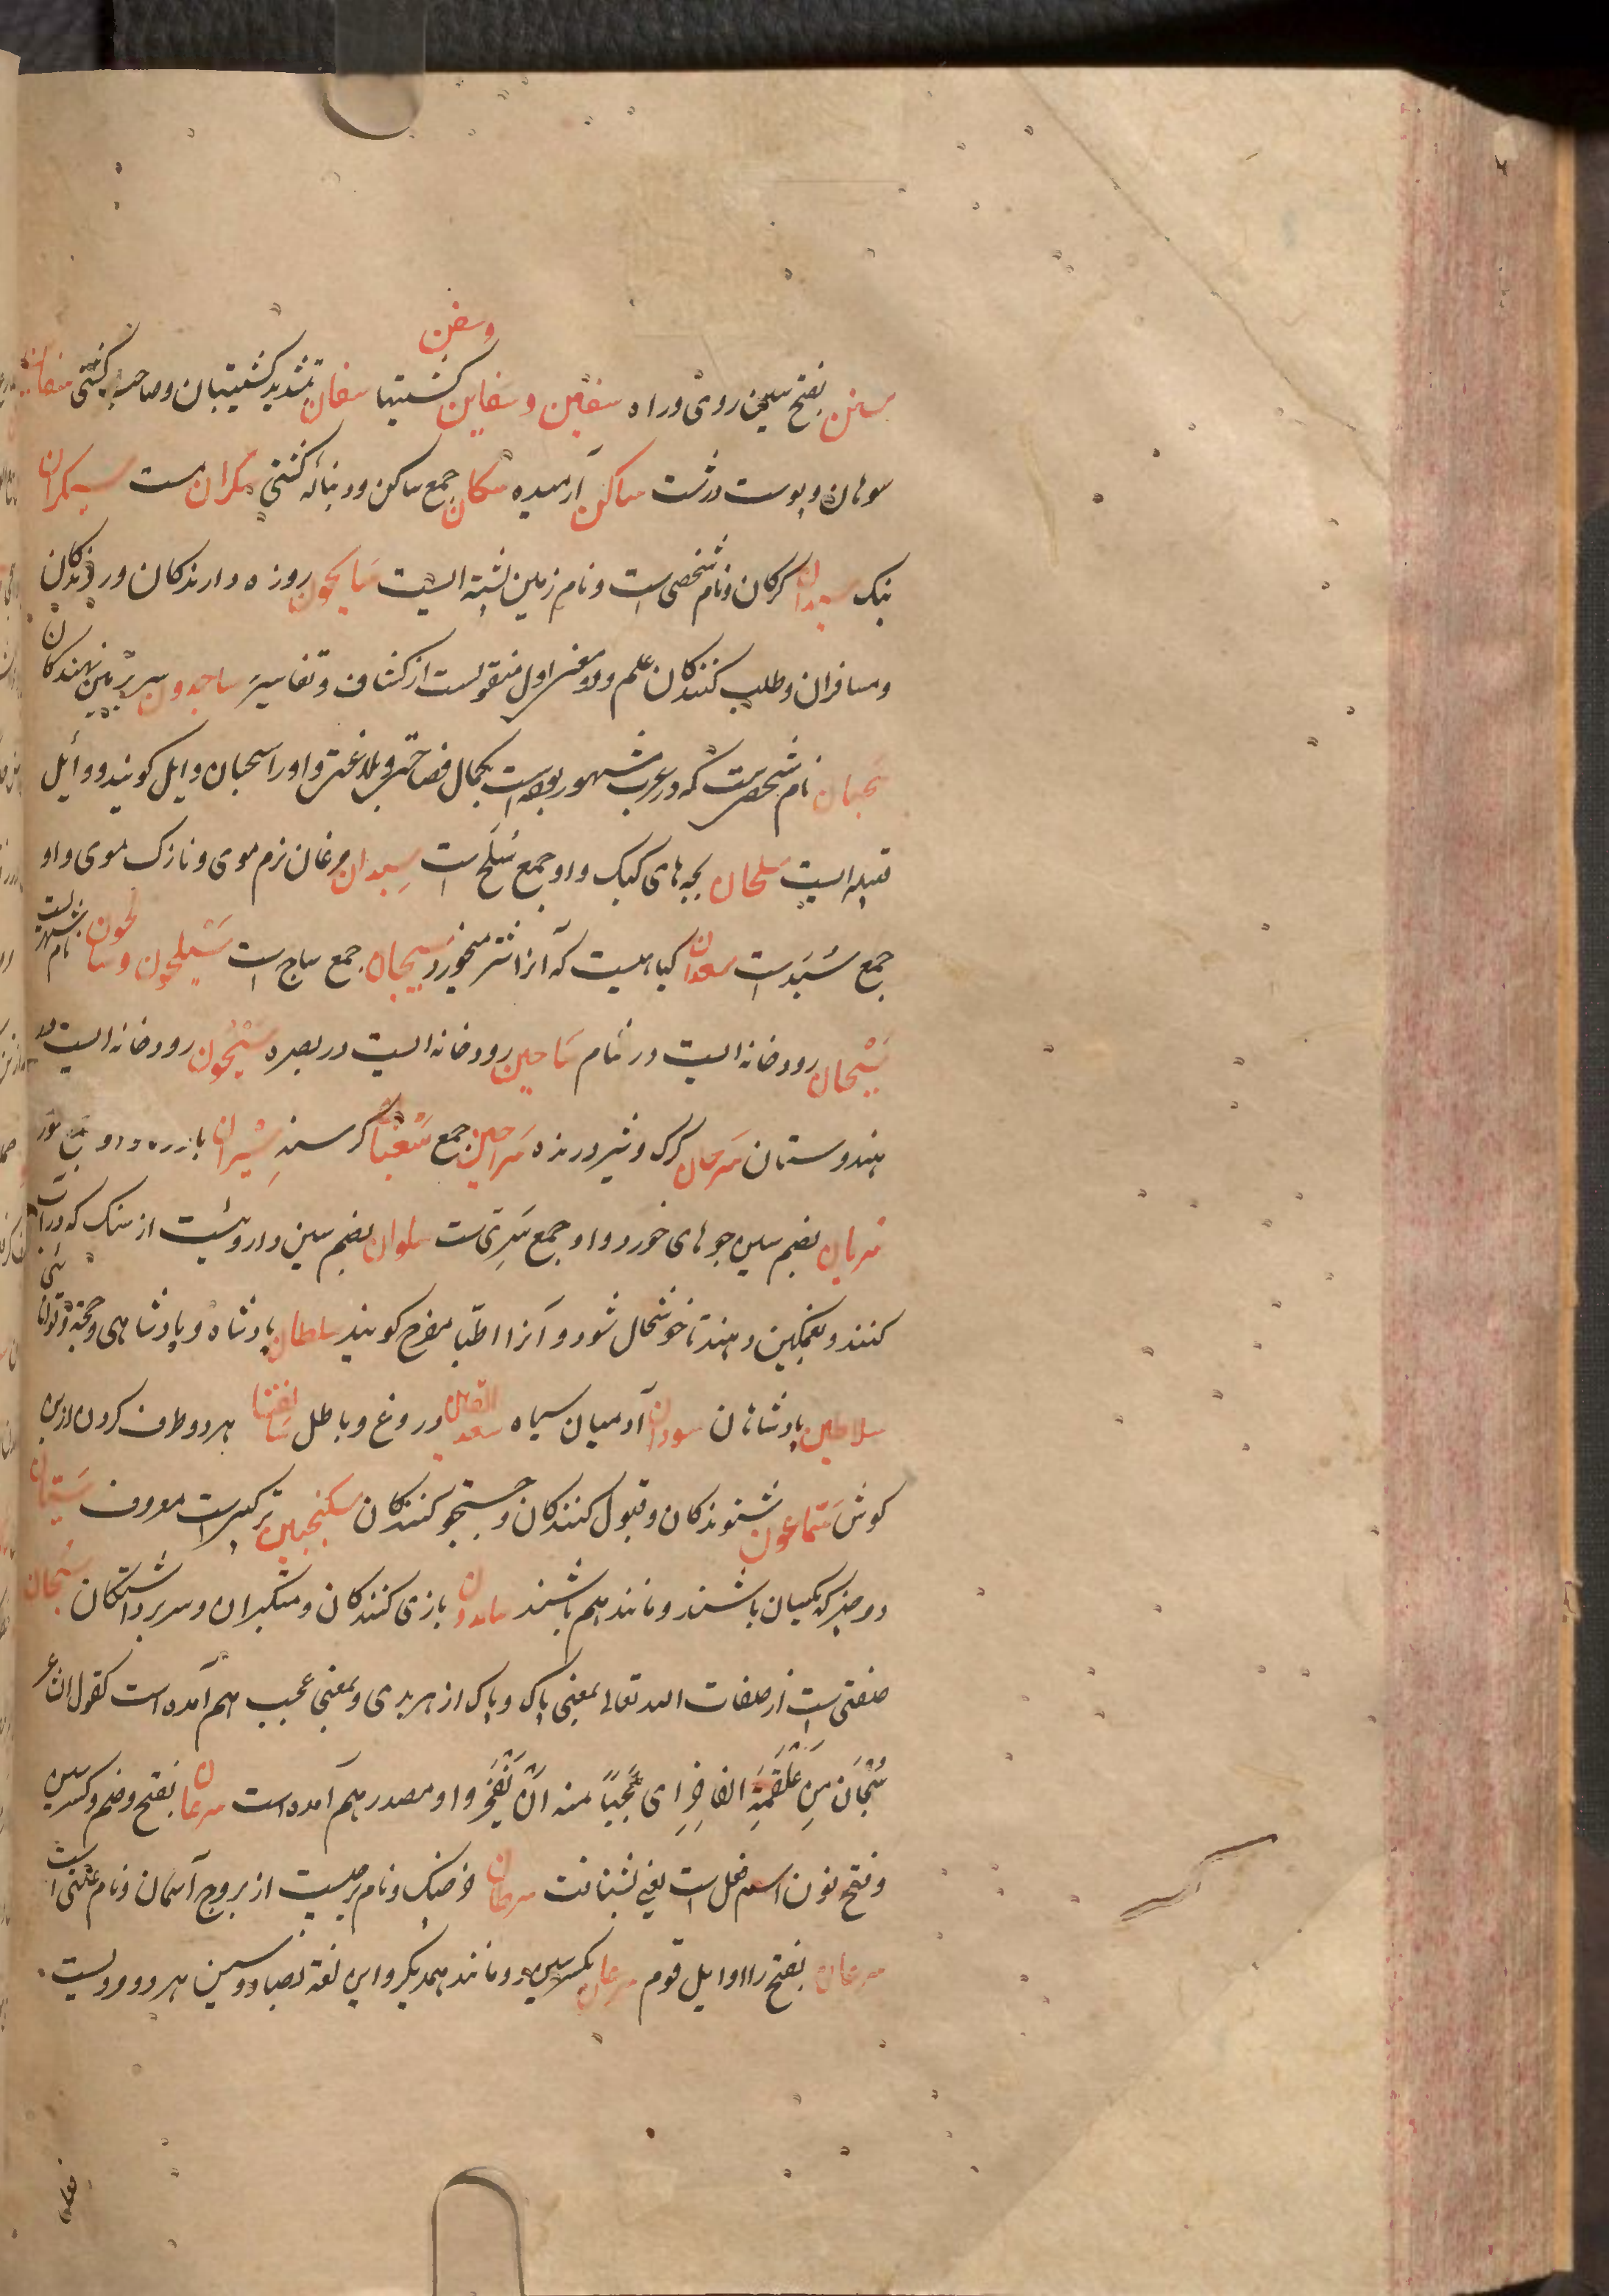 سنن بفتح سین روی و راه سفین و سفاین و سفن کشتیها سفان بتشدید کشتیبان و صاحب کشتی سفان
سوهان و پوست درشت ساکن آرمیده سکان جمع ساکن و دنباله کشتی سکران مست سیکران
بنک سیدان کرکان و نام شخصی است و نام زمین پشته ایست سایحون روزه دارندکان و روندکان
و مسافران و طلب کنندکان علم و دو معنی اول منقولست از کشاف و تفاسیر ساجدون سر بر زمین نهندکان
سحبان نام شخصیست که در عرب مشهور بوده است بکمال فصاحت و بلاغت و او را سحبان وایل کویند و وائل
قبیله ایست سلحان بچه های کبک و او جمع سلح است سبدان مرغان نرم موی و نازک موی و او
جمع سُبَد است سعدان کیاهیست که آنرا شتر میخورد سیجان جمع ساج است سَیلحون و سالحون نام شهریست
سَیْحان رودخانه ایست در شام ساحین رودخانه ایست در بصره سَیْحُون رودخانه ایست در
هندوستان سرحان کرک و شیر درنده سراحین جمع سَغبان کرسنه سیران
سریان بضم سین جوهای خورد و او جمع سَرِی ست سلوان بضم سین داروئیست از سنک که در آب
کنند و بغمکین دهند تا خوشحال شود و آنرا اطبا مفرح کویند سلطان پادشاه و پادشاهی و حجة و توانائی
سلاطین پادشاهان سودان آدمیان سیاه سعد القین دروغ و باطل سالفتان هر دو طرف کردن از بن
کوش سَمّاعون شنوندکان و قبول کنندکان و جستجو کنندکان سکنجبین ترکیبیست معروف سَیّان
دو چیز که یکسان باشند و مانند هم باشند سامدون بازی کنندکان و متکبران و سربرداشتکان سُبحان
صفتی است از صفات الله تعالی بمعنی پاک و پاک از هر بدی و بمعنی عجب هم آمده است کقول الشاعر
سُبْحَانَ مِن عَلقَمَةَ الفاخِرِ ای عَجَباً منه اَن یَفخَرَ و او مصدر هم آمده است سرعان بفتح و ضم و کسر سین
و فتح نون اسم فعل است یعنی بشتافت سرطان خرچنک و نام برجیست از بروج آسمان و نام علتی است
سرعان بفتح را اوایل قوم سرعان بکسر سین دو مانند همدیکر و این لغة بصاد و سین هر دو مرویست